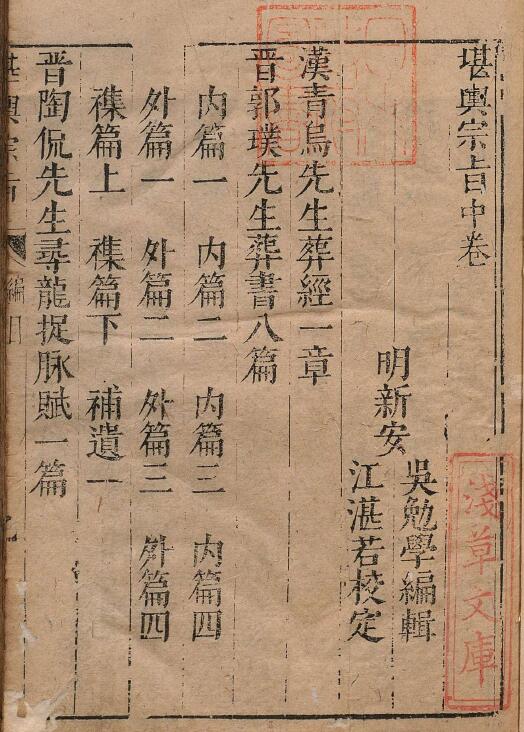 堪輿宗旨中卷
明新安
吳勉學編輯
江湛若校定
漢青烏先生葬經一章
晋郭璞先生葬書八篇
内篇一 内篇二 内篇三 内篇四
外篇一 外篇二 外篇三 外篇四
襍篇上 襍篇下 補遺一
晋陶侃先生尋龍捉脉賦一篇
堪輿宗旨
編目
淺草文庫